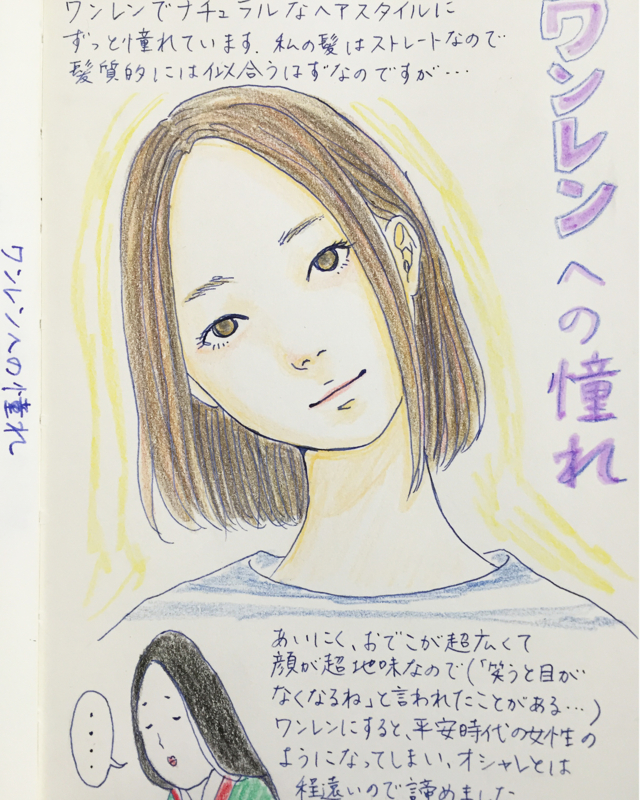 ワンレンでナチュラルなヘアスタイルに
ずっと憧れています。私の髪はストレートなので
髪質的には似合うはずなのですが…
ワンレンへの憧れ
ワンレンへの憧れ
あいにく、おでこが超広くて
顔が超地味なので(「笑うと目が
なくなるね」と言われたことがある…)
ワンレンにすると、平安時代の女性の
ようになってしまい、オシャレとは
程遠いので諦めました
・・・・